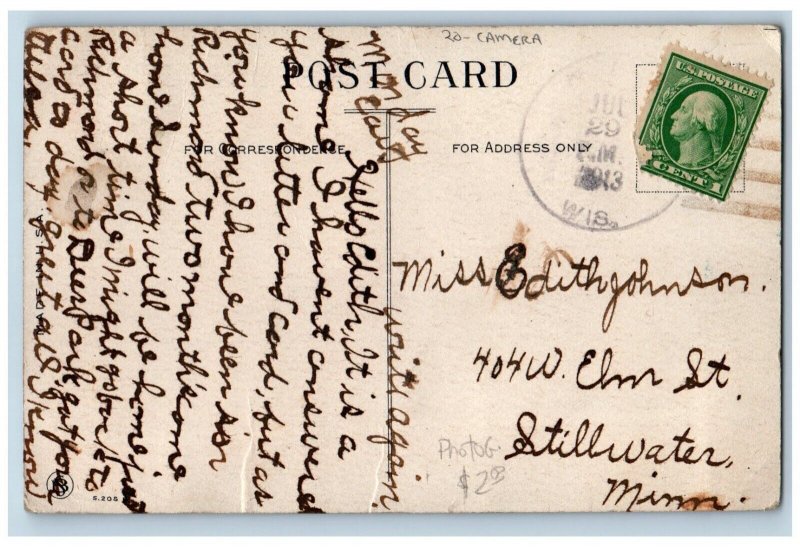 20- CAMERA
POST CARD
FOR CORRESPONDENCE
FOR ADDRESS ONLY
U.S. POSTAGE
1 CENT 1
JUL
29
A.M.
1913
WIS.
Monday
Eav
Hello Edith, It is a
shame I havent answered
your letter and card, but as
you know I have been in
Richmond two months come
home Sunday, will be home just
a short time I might go back to
Richmond or to Deerpark, got your
card to day, greet all I know
write again.
Miss Edith Johnson.
404 W. Elm St.
Stillwater,
Minn.
Photog.
$2.00
MADE IN U.S.A.
S.206